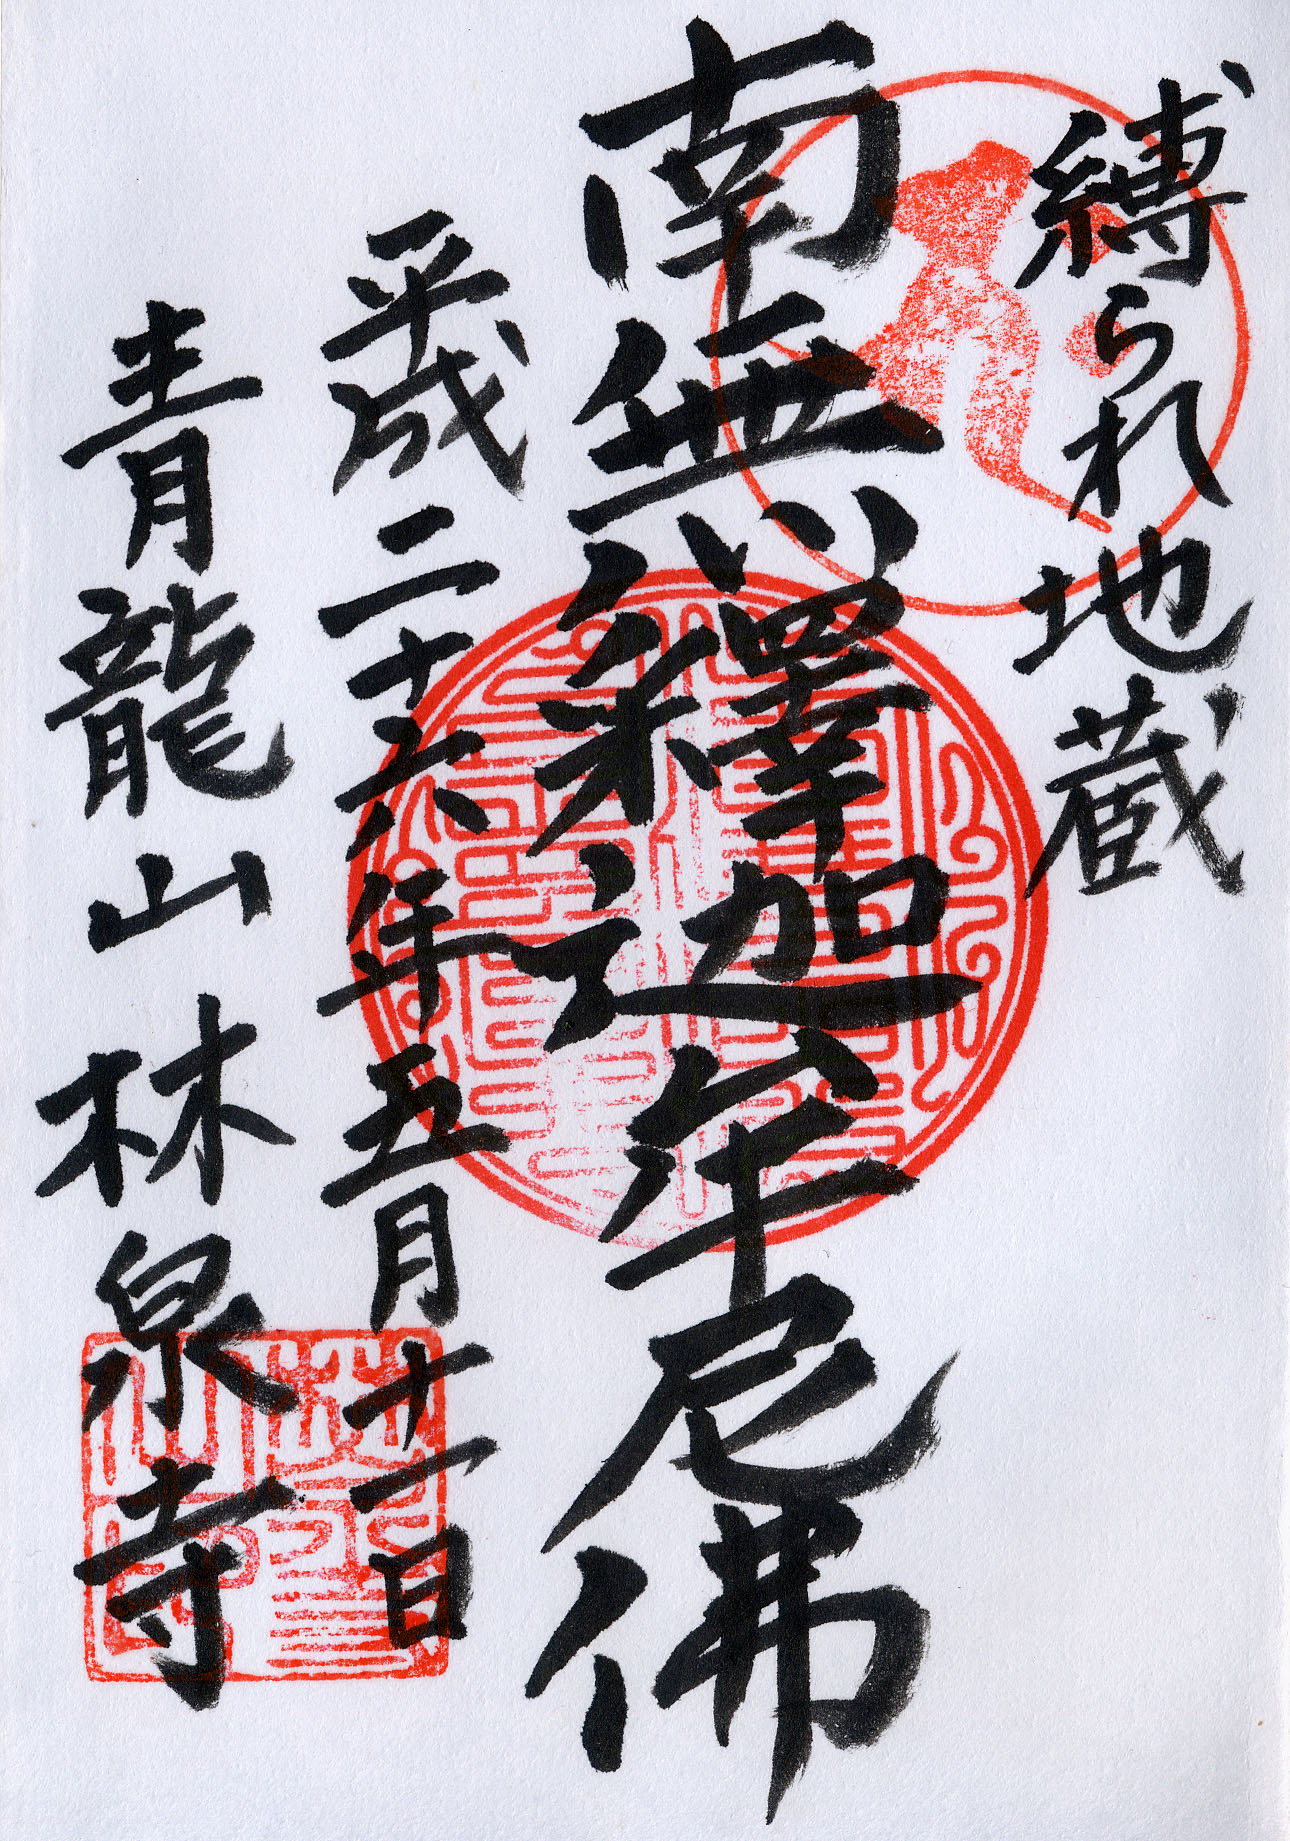 縛られ地蔵
南無釋迦牟尼佛
平成二十六年五月十一日
青龍山林泉寺